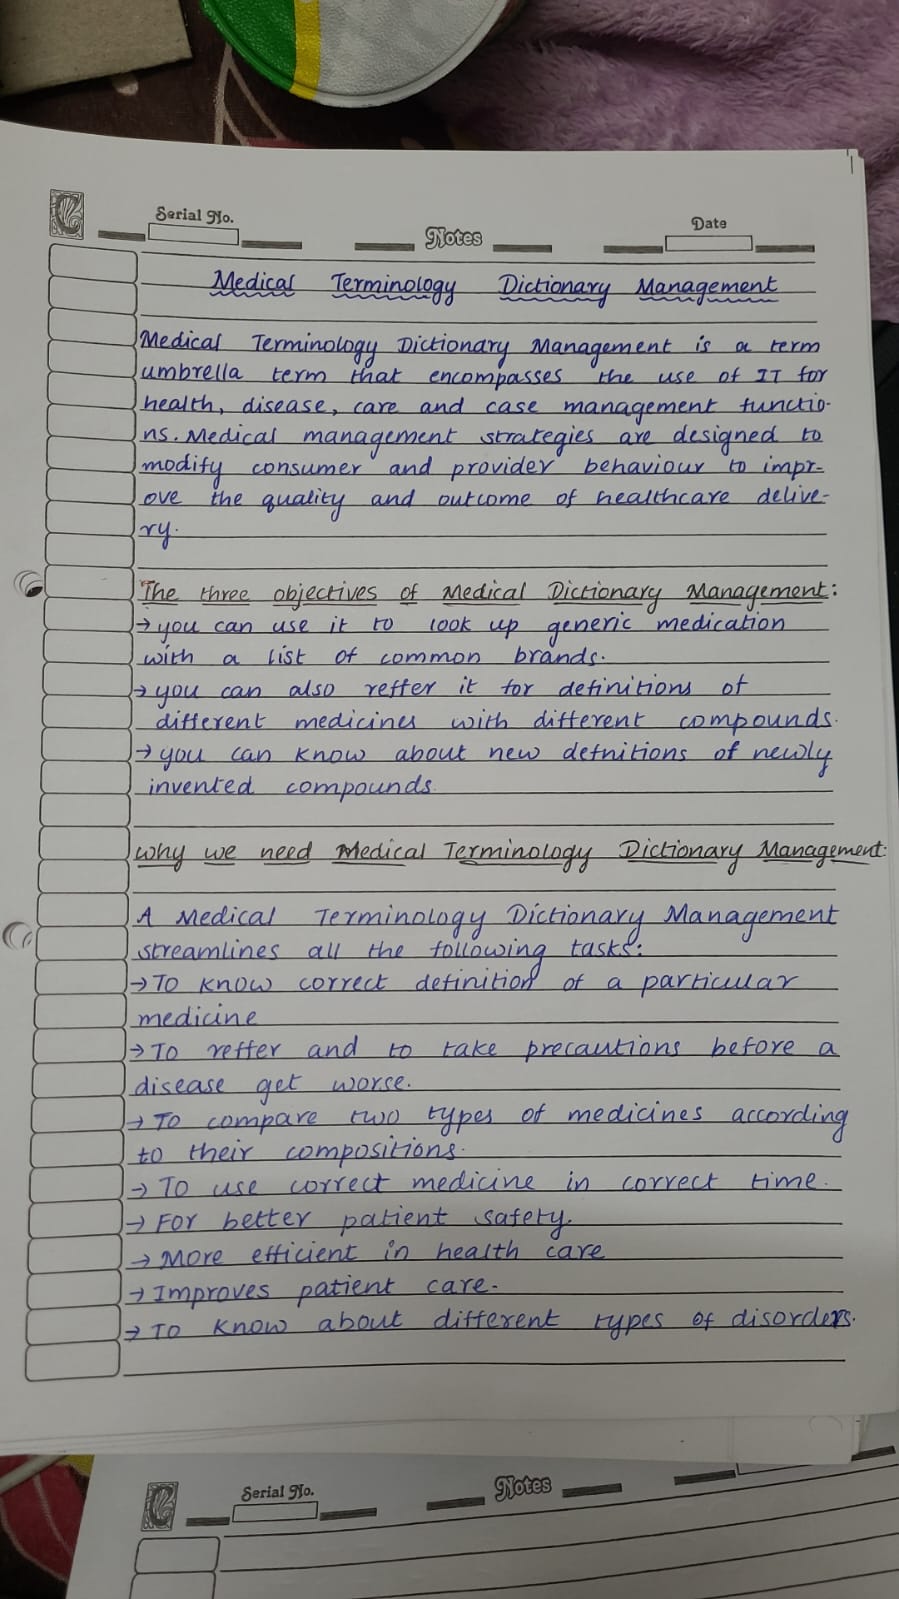 Serial No.
Notes
Date
Medical Terminology Dictionary Management
Medical Terminology Dictionary Management is a term
umbrella term that encompasses the use of IT for
health, disease, care and case management functio-
ns. Medical management strategies are designed to
modify consumer and provider behaviour to impr-
ove the quality and outcome of healthcare delive-
ry.
The three objectives of Medical Dictionary Management:
→ you can use it to look up generic medication
with a list of common brands.
→ you can also reffer it for definitions of
different medicines with different compounds.
→ you can know about new defnitions of newly
invented compounds.
why we need Medical Terminology Dictionary Management:
A Medical Terminology Dictionary Management
streamlines all the following tasks:
→ To know correct definition of a particular
medicine
→ To reffer and to take precautions before a
disease get worse.
→ To compare two types of medicines according
to their compositions.
→ To use correct medicine in correct time.
→ For better patient safety.
→ More efficient in health care
→ Improves patient care.
→ To know about different types of disorders.
Serial No.
Notes